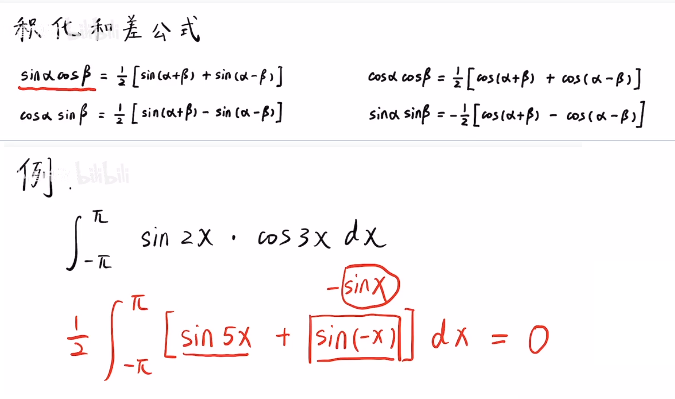 积化和差公式
sinα cosβ = 1/2 [sin(α+β) + sin(α-β)]
cosα cosβ = 1/2 [cos(α+β) + cos(α-β)]
cosα sinβ = 1/2 [sin(α+β) - sin(α-β)]
sinα sinβ = -1/2 [cos(α+β) - cos(α-β)]
例.
bilibili
∫_{-π}^{π} sin 2x · cos 3x dx
-sinx
1/2 ∫_{-π}^{π} [sin 5x + sin(-x)] dx = 0